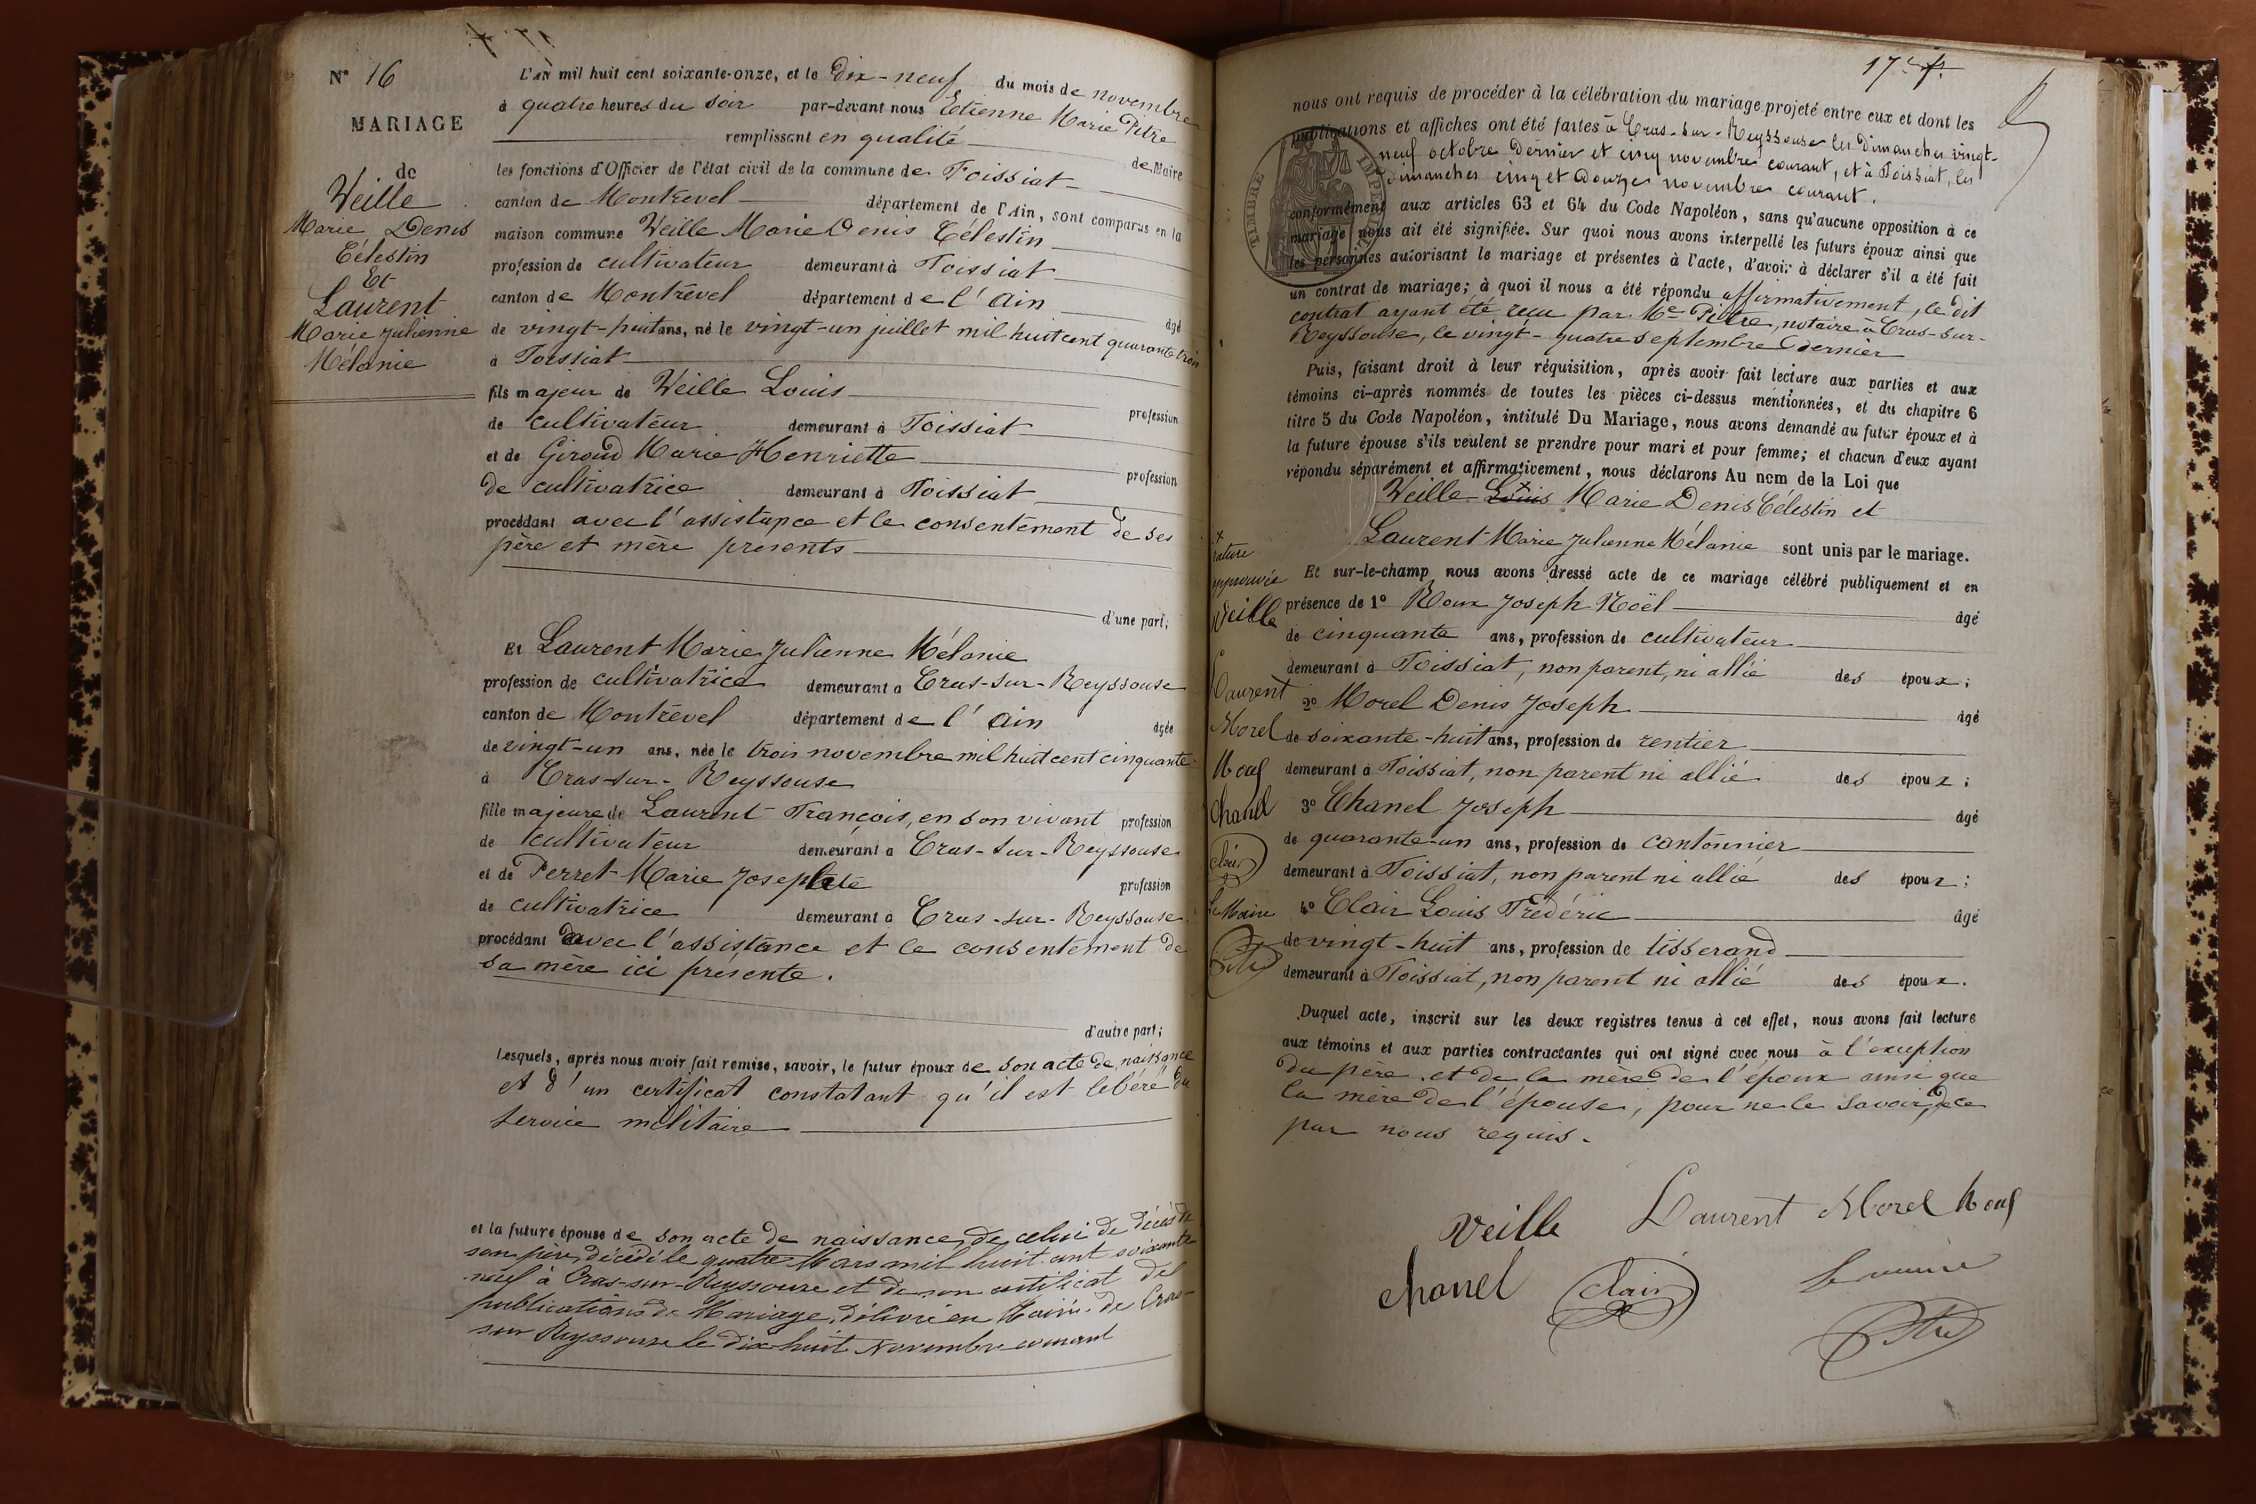 N° 16
MARIAGE
de
Veille
Marie Denis
Célestin
Et
Laurent
Marie Julienne
Mélanie
L'an mil huit cent soixante-onze, et le Dix-neuf du mois de novembre
à quatre heures du soir par-devant nous Etienne Marie Pitre
remplissant en qualité de Maire
les fonctions d'Officier de l'état civil de la commune de Foissiat
canton de Montrevel département de l'Ain, sont comparus en la
maison commune Veille Marie Denis Célestin
profession de cultivateur demeurant à Foissiat
canton de Montrevel département de l'Ain âgé
de vingt-huit ans, né le vingt-un juillet mil huit cent quarante trois
à Foissiat
fils majeur de Veille Louis profession
de cultivateur demeurant à Foissiat
et de Giroud Marie Henriette profession
de cultivatrice demeurant à Foissiat
procédant avec l'assistance et le consentement de ses
père et mère présents
d'une part;
Et Laurent Marie Julienne Mélanie
profession de cultivatrice demeurant à Cras-sur-Reyssouse
canton de Montrevel département de l'Ain âgée
de vingt-un ans, née le trois novembre mil huit cent cinquante
à Cras-sur-Reyssouse
fille majeure de Laurent François, en son vivant profession
de cultivateur demeurant à Cras-sur-Reyssouse
et de Perret Marie Josephte profession
de cultivatrice demeurant à Cras-sur-Reyssouse
procédant avec l'assistance et le consentement de
sa mère ici présente.
d'autre part;
Lesquels, après nous avoir fait remise, savoir, le futur époux de son acte de naissance
et d'un certificat constatant qu'il est libéré du
service militaire
et la future épouse de son acte de naissance, de celui de décès de
son père, décédé le quatre Mars mil huit cent soixante
neuf à Cras-sur-Reyssouse et de son certificat de
publications de Mariage, délivré en Mairie de Cras-
sur Reyssouse le dix-huit Novembre courant
17e f.
nous ont requis de procéder à la célébration du mariage projeté entre eux et dont les
publications et affiches ont été faites à Cras-sur-Reyssouse les Dimanches vingt-
neuf octobre dernier et cinq novembre courant, et à Foissiat, les
dimanches cinq et douze novembre courant.
TIMBRE IMPERIAL
conformément aux articles 63 et 64 du Code Napoléon, sans qu'aucune opposition à ce
mariage nous ait été signifiée. Sur quoi nous avons interpellé les futurs époux ainsi que
les personnes autorisant le mariage et présentes à l'acte, d'avoir à déclarer s'il a été fait
un contrat de mariage; à quoi il nous a été répondu affirmativement, le dit
contrat ayant été reçu par Me Pitre, notaire à Cras-sur-
Reyssouse, le vingt-quatre septembre dernier
Puis, faisant droit à leur réquisition, après avoir fait lecture aux parties et aux
témoins ci-après nommés de toutes les pièces ci-dessus mentionnées, et du chapitre 6
titre 5 du Code Napoléon, intitulé Du Mariage, nous avons demandé au futur époux et à
la future épouse s'ils veulent se prendre pour mari et pour femme; et chacun d'eux ayant
répondu séparément et affirmativement, nous déclarons Au nom de la Loi que
Veille Louis Marie Denis Célestin et
Laurent Marie Julienne Mélanie sont unis par le mariage.
Et sur-le-champ nous avons dressé acte de ce mariage célébré publiquement et en
présence de 1° Roux Joseph Noël âgé
de cinquante ans, profession de cultivateur
demeurant à Foissiat, non parent, ni allié des époux;
2° Morel Denis Joseph âgé
de soixante-huit ans, profession de rentier
demeurant à Foissiat, non parent ni allié des époux;
3° Chanel Joseph âgé
de quarante-un ans, profession de cantonnier
demeurant à Foissiat, non parent ni allié des époux;
4° Clair Louis Frédéric âgé
de vingt-huit ans, profession de tisserand
demeurant à Foissiat, non parent ni allié des époux.
Duquel acte, inscrit sur les deux registres tenus à cet effet, nous avons fait lecture
aux témoins et aux parties contractantes qui ont signé avec nous à l'exception
du père et de la mère de l'époux ainsi que
la mère de l'épouse, pour ne le savoir, de ce
par nous requis.
x
rature
approuvée
Veille
Laurent
Morel
Chanel
Clair
Le Maire
Pitre
Veille Laurent Morel
Chanel Clair Le maire
Pitre